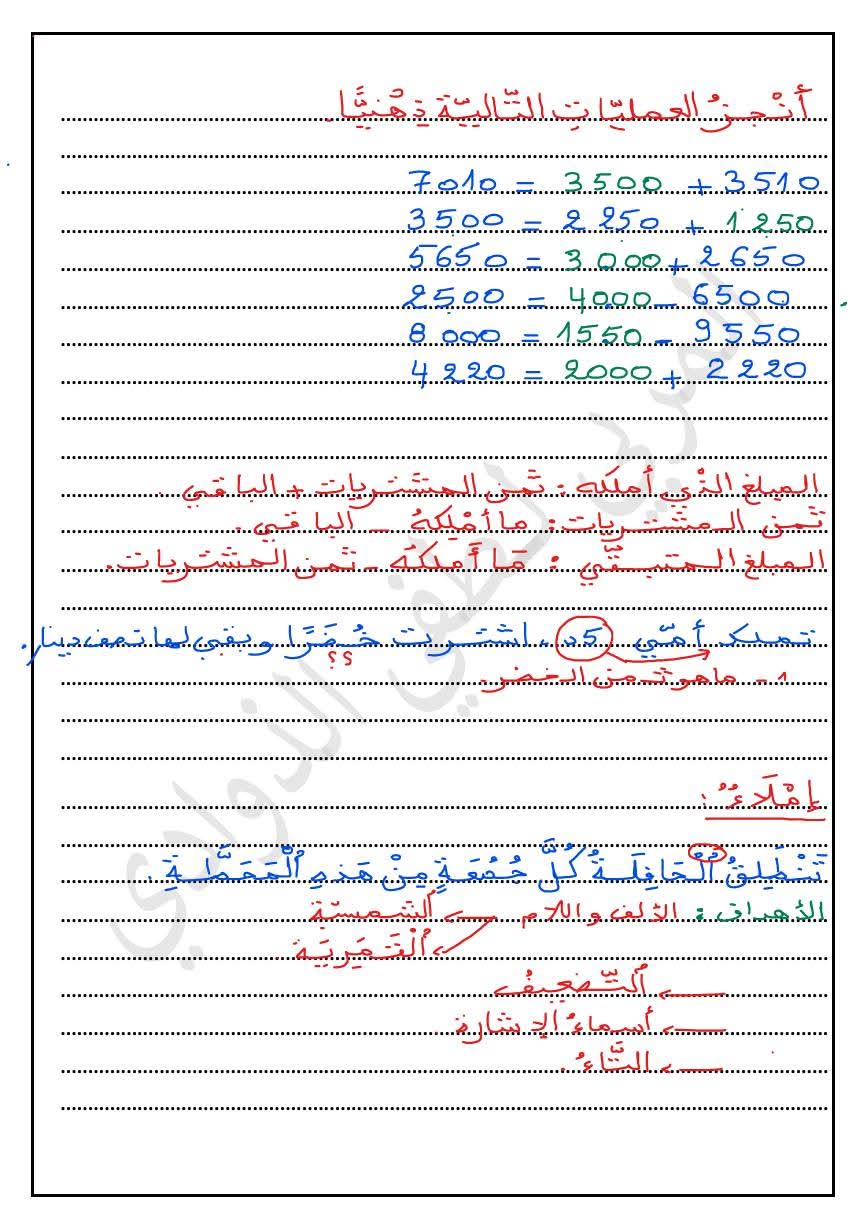 أَنْجزُ العمليّاتِ التّاليّة ذهْنيًّا.
7010 = 3500 + 3510
3500 = 2250 + 1250
5650 = 3000 + 2650
2500 = 4000 - 6500
8000 = 1550 - 9550
4220 = 2000 + 2220
المبلغ الذي أملكه : ثمن المشتريات + الباقي.
ثمن المشتريات : ما أمْلِكهُ - الباقي.
المبلغ المتبقّي : مَا أَملكهُ - ثمن المشتريات.
تملك أمّي 5د ، اشترت خُضَرًا وبقي لها نصف دينار.
؟؟
1 - ما هو ثمن الخضر.
إمْلَاءٌ :
تَنْطَلِقُ ٱلْحَافِلَةُ كُلَّ جُمُعَةٍ مِنْ هَذِهِ ٱلْمَحَطَّةِ.
الأهداف : الألف واللام ← ٱلشمسيّة
ٱلْقَمَرِيَة
← ٱلتّضعيفُ
← أسماءُ الإشارة.
← التَّاءُ.
المربي لطفي الذوادي